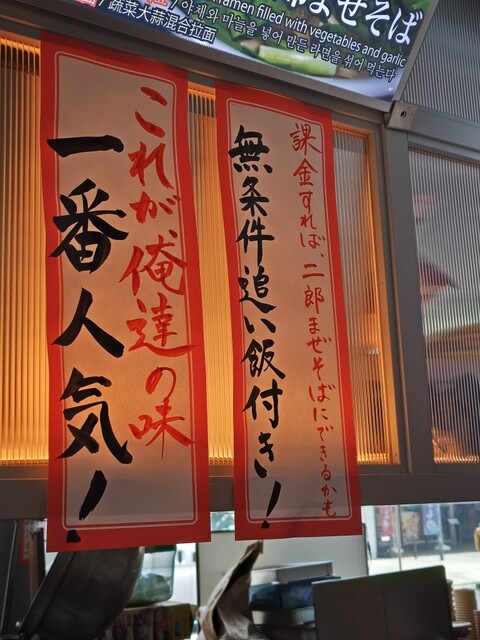 まぜそば
ramen filled with vegetables and garlic
/ 蔬菜大蒜混合拉面
/ 야채와 마늘을 넣어 만든 라면을 섞어 먹는다
課金すれば、二郎まぜそばにできるかも
無条件追い飯付き!
これが、俺達の味
一番人気!